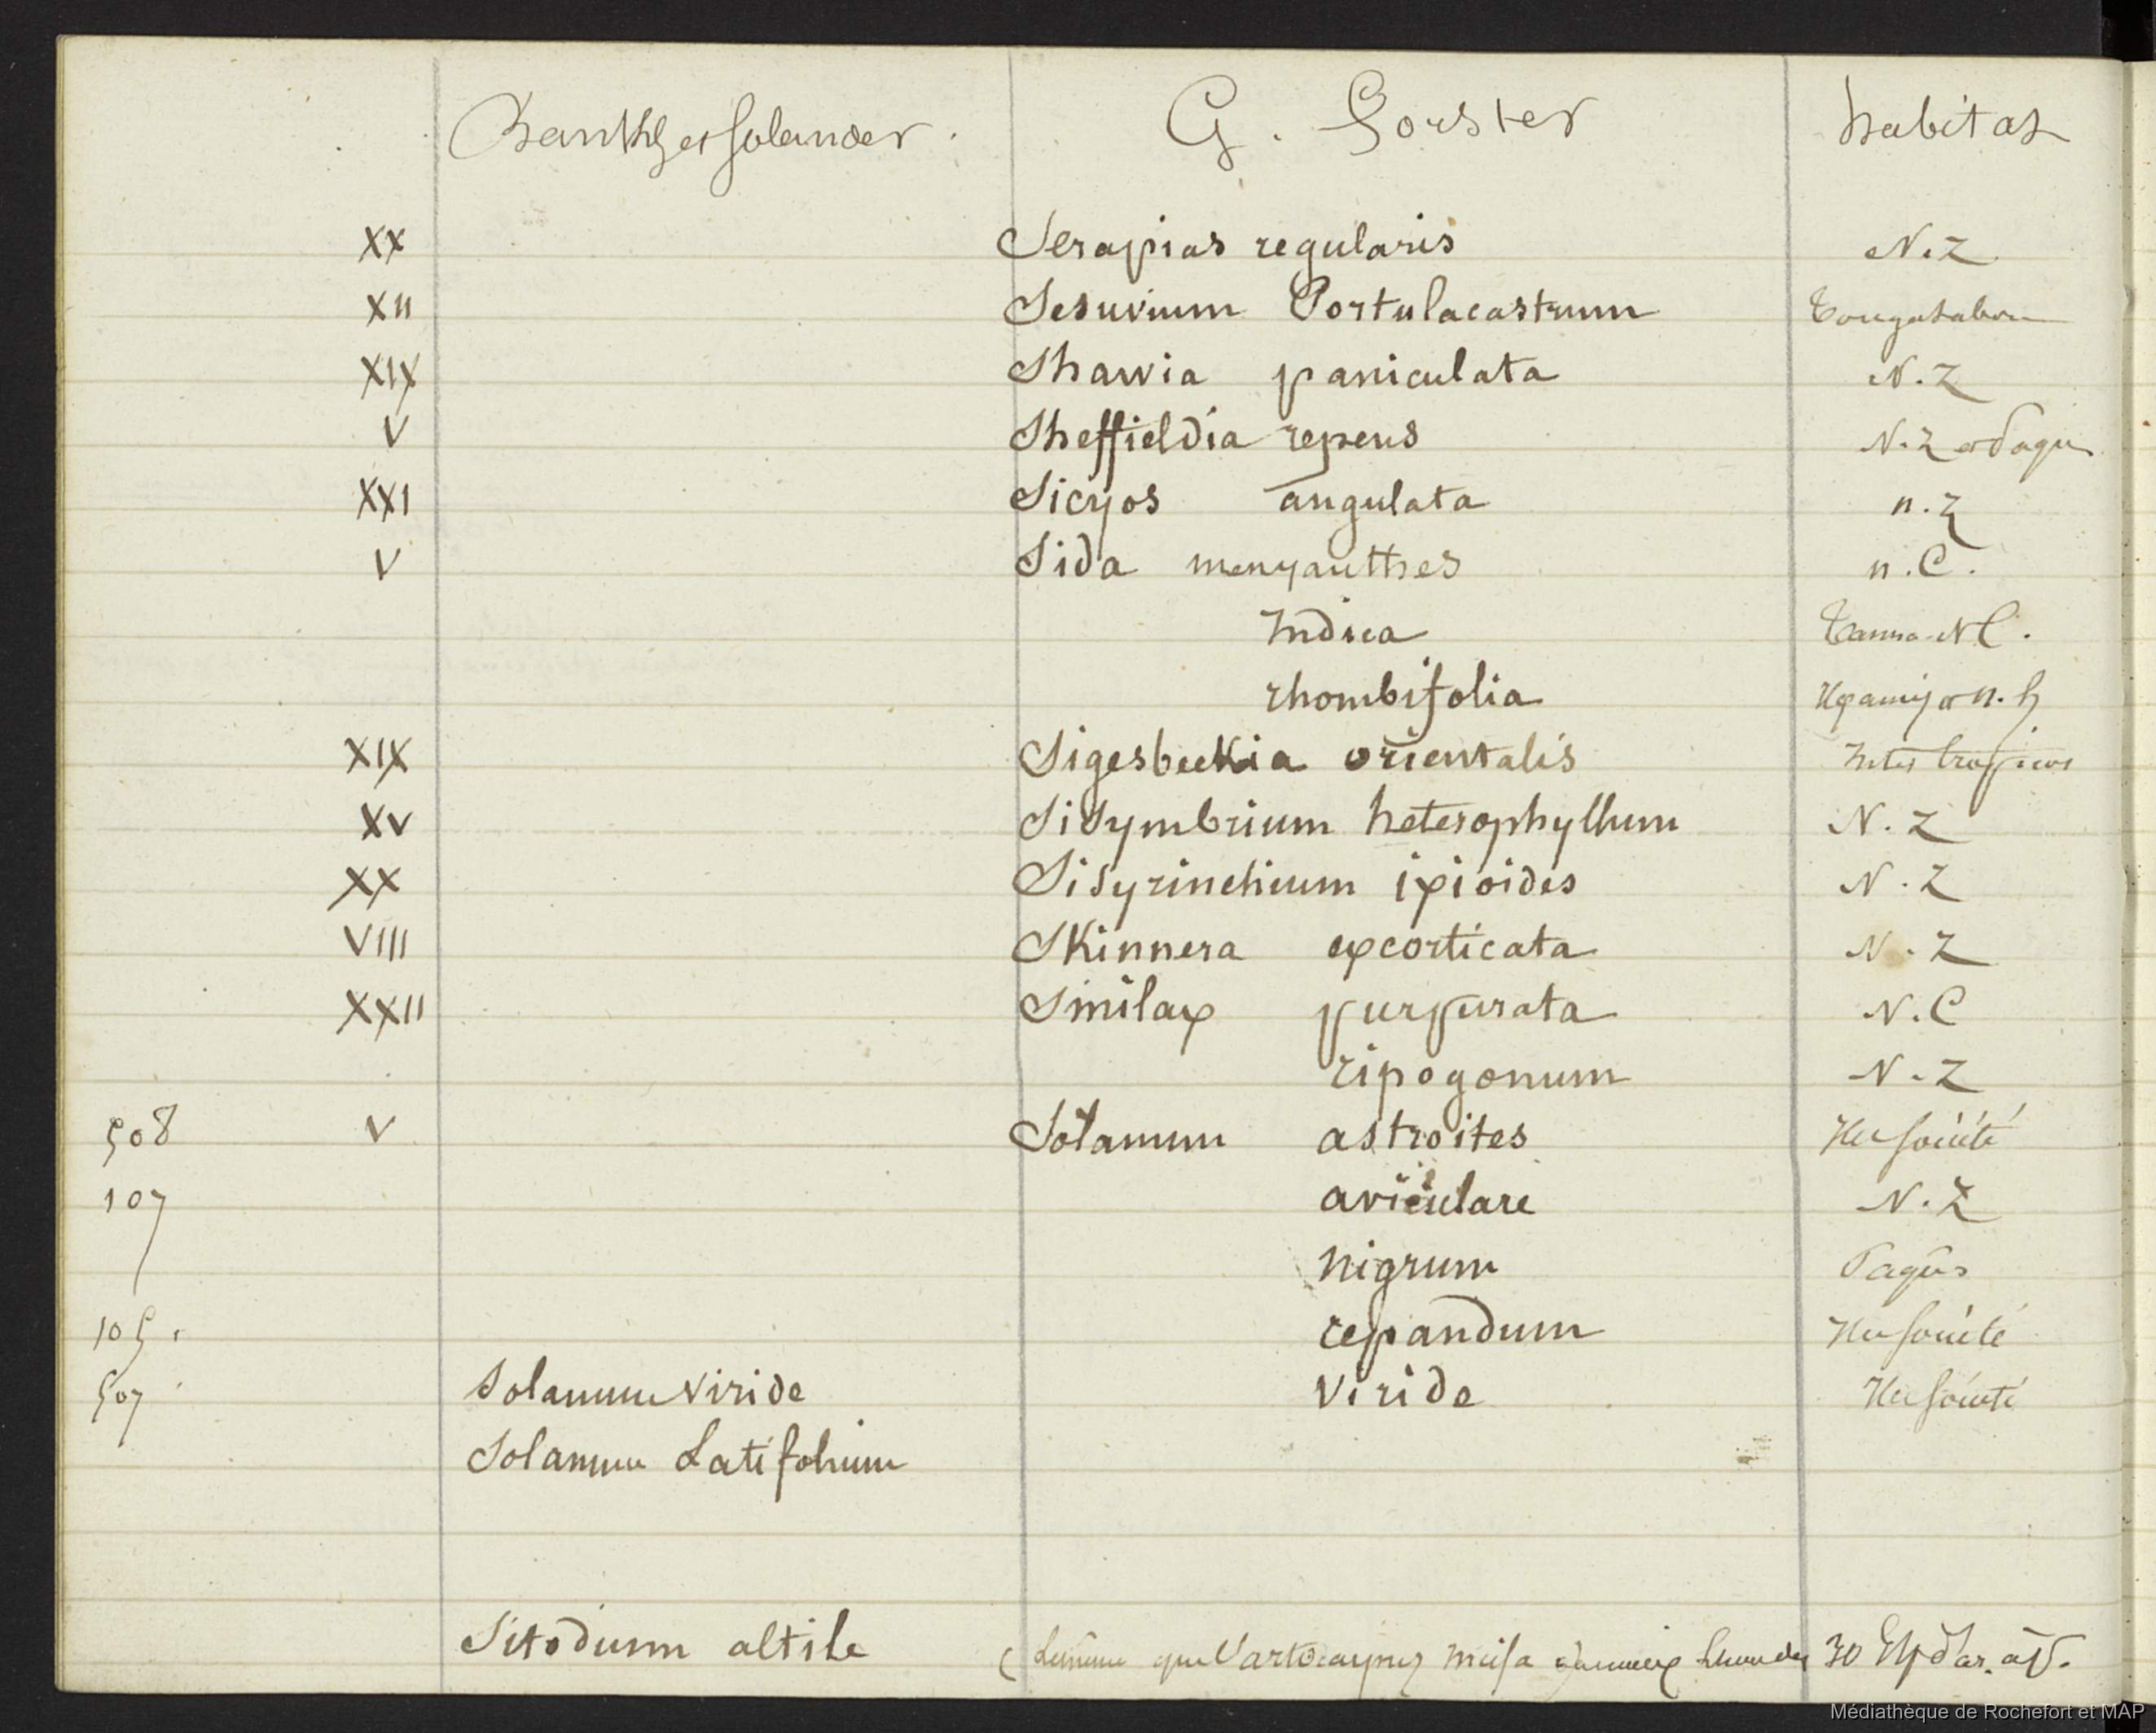 Banks et Solander. G. Forster habitat
XX Serapias regularis N.Z
XII Sesuvium Portulacastrum Tongatabou
XIX Shawia paniculata N.Z
V Sheffieldia repens N.Z et Paques
XXI Sicyos angulata n.Z
V Sida menyanthes n.C.
Indica Tanna. N C.
rhombifolia n.h
XIX Sigesbeckia orientalis Inter tropicos
XV Sisymbrium heterophyllum N.Z
XX Sisyrinchium ixioides N.Z
VIII Skinnera excorticata N.Z
XXII Smilax purpurata N.C
ripogonum N.Z
508 V Solanum astroites Iles Société
107 aviculare N.Z
nigrum Paques
105. repandum Iles Société
507 Solanum viride viride Iles Société
Solanum Latifolium
Sitodium altile que l'artocarpus 30
Médiathèque de Rochefort et MAP